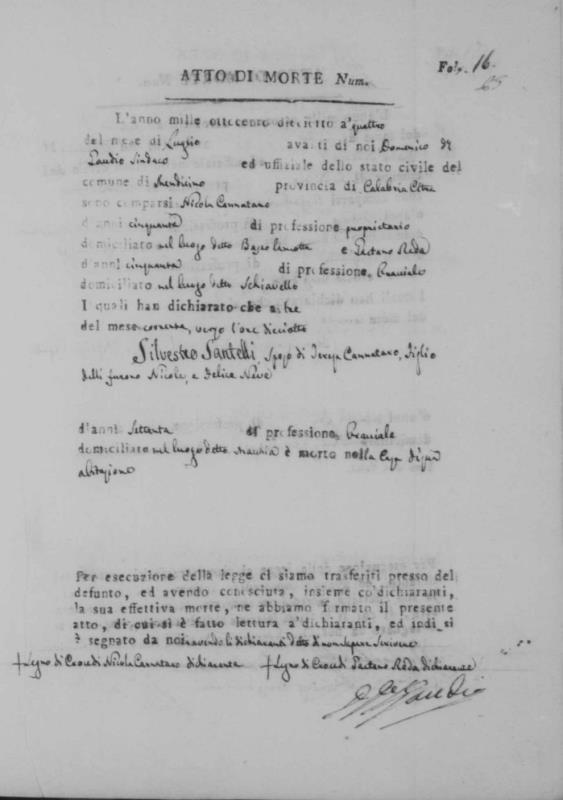 Fol. 16.
65
ATTO DI MORTE Num.
L'anno mille ottocento dieciotto a' quattro
del mese di Luglio avanti di noi Domenico de
Gaudio Sindaco ed uffiziale dello stato civile del
comune di Mendicino provincia di Calabria Citra
sono comparsi Nicola Cannataro
d'anni cinquanta di professione proprietario
domiciliato nel luogo detto Basso e Gaetano Reda
d'anni cinquanta di professione Braciale
domiciliato nel luogo detto Schiavello
I quali han dichiarato che a' tre
del mese corrente, verso l'ore dieciotto
Silvestro Santelli, Sposo di Teresa Cannataro, Figlio
delli furono Nicola, e Felice Neve
d'anni Settanta di professione Braciale
domiciliato nel luogo detto è morto nella Casa di sua
abitazione
Per esecuzione della legge ci siamo trasferiti presso del
defunto, ed avendo conosciuta, insieme co' dichiaranti,
la sua effettiva morte, ne abbiamo formato il presente
atto, di cui si è fatto lettura a' dichiaranti, ed indi si
è segnato da noi avendo li dichiaranti detto di non sapere Scrivere
† Segno di Croce di Nicola Cannataro dichiarante † Segno di Croce di Gaetano Reda dichiarante
de Gaudio